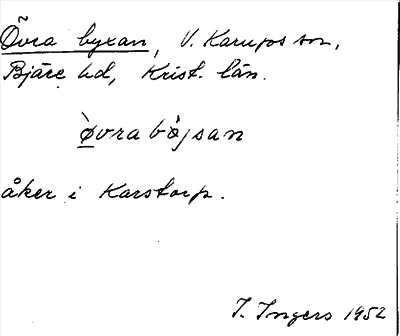 Övra byxan, V. Karups sn,
Bjäre hd, Krist. län.
ø̀vra bø̀jsan
åker i Karstorp.
I. Ingers 1952